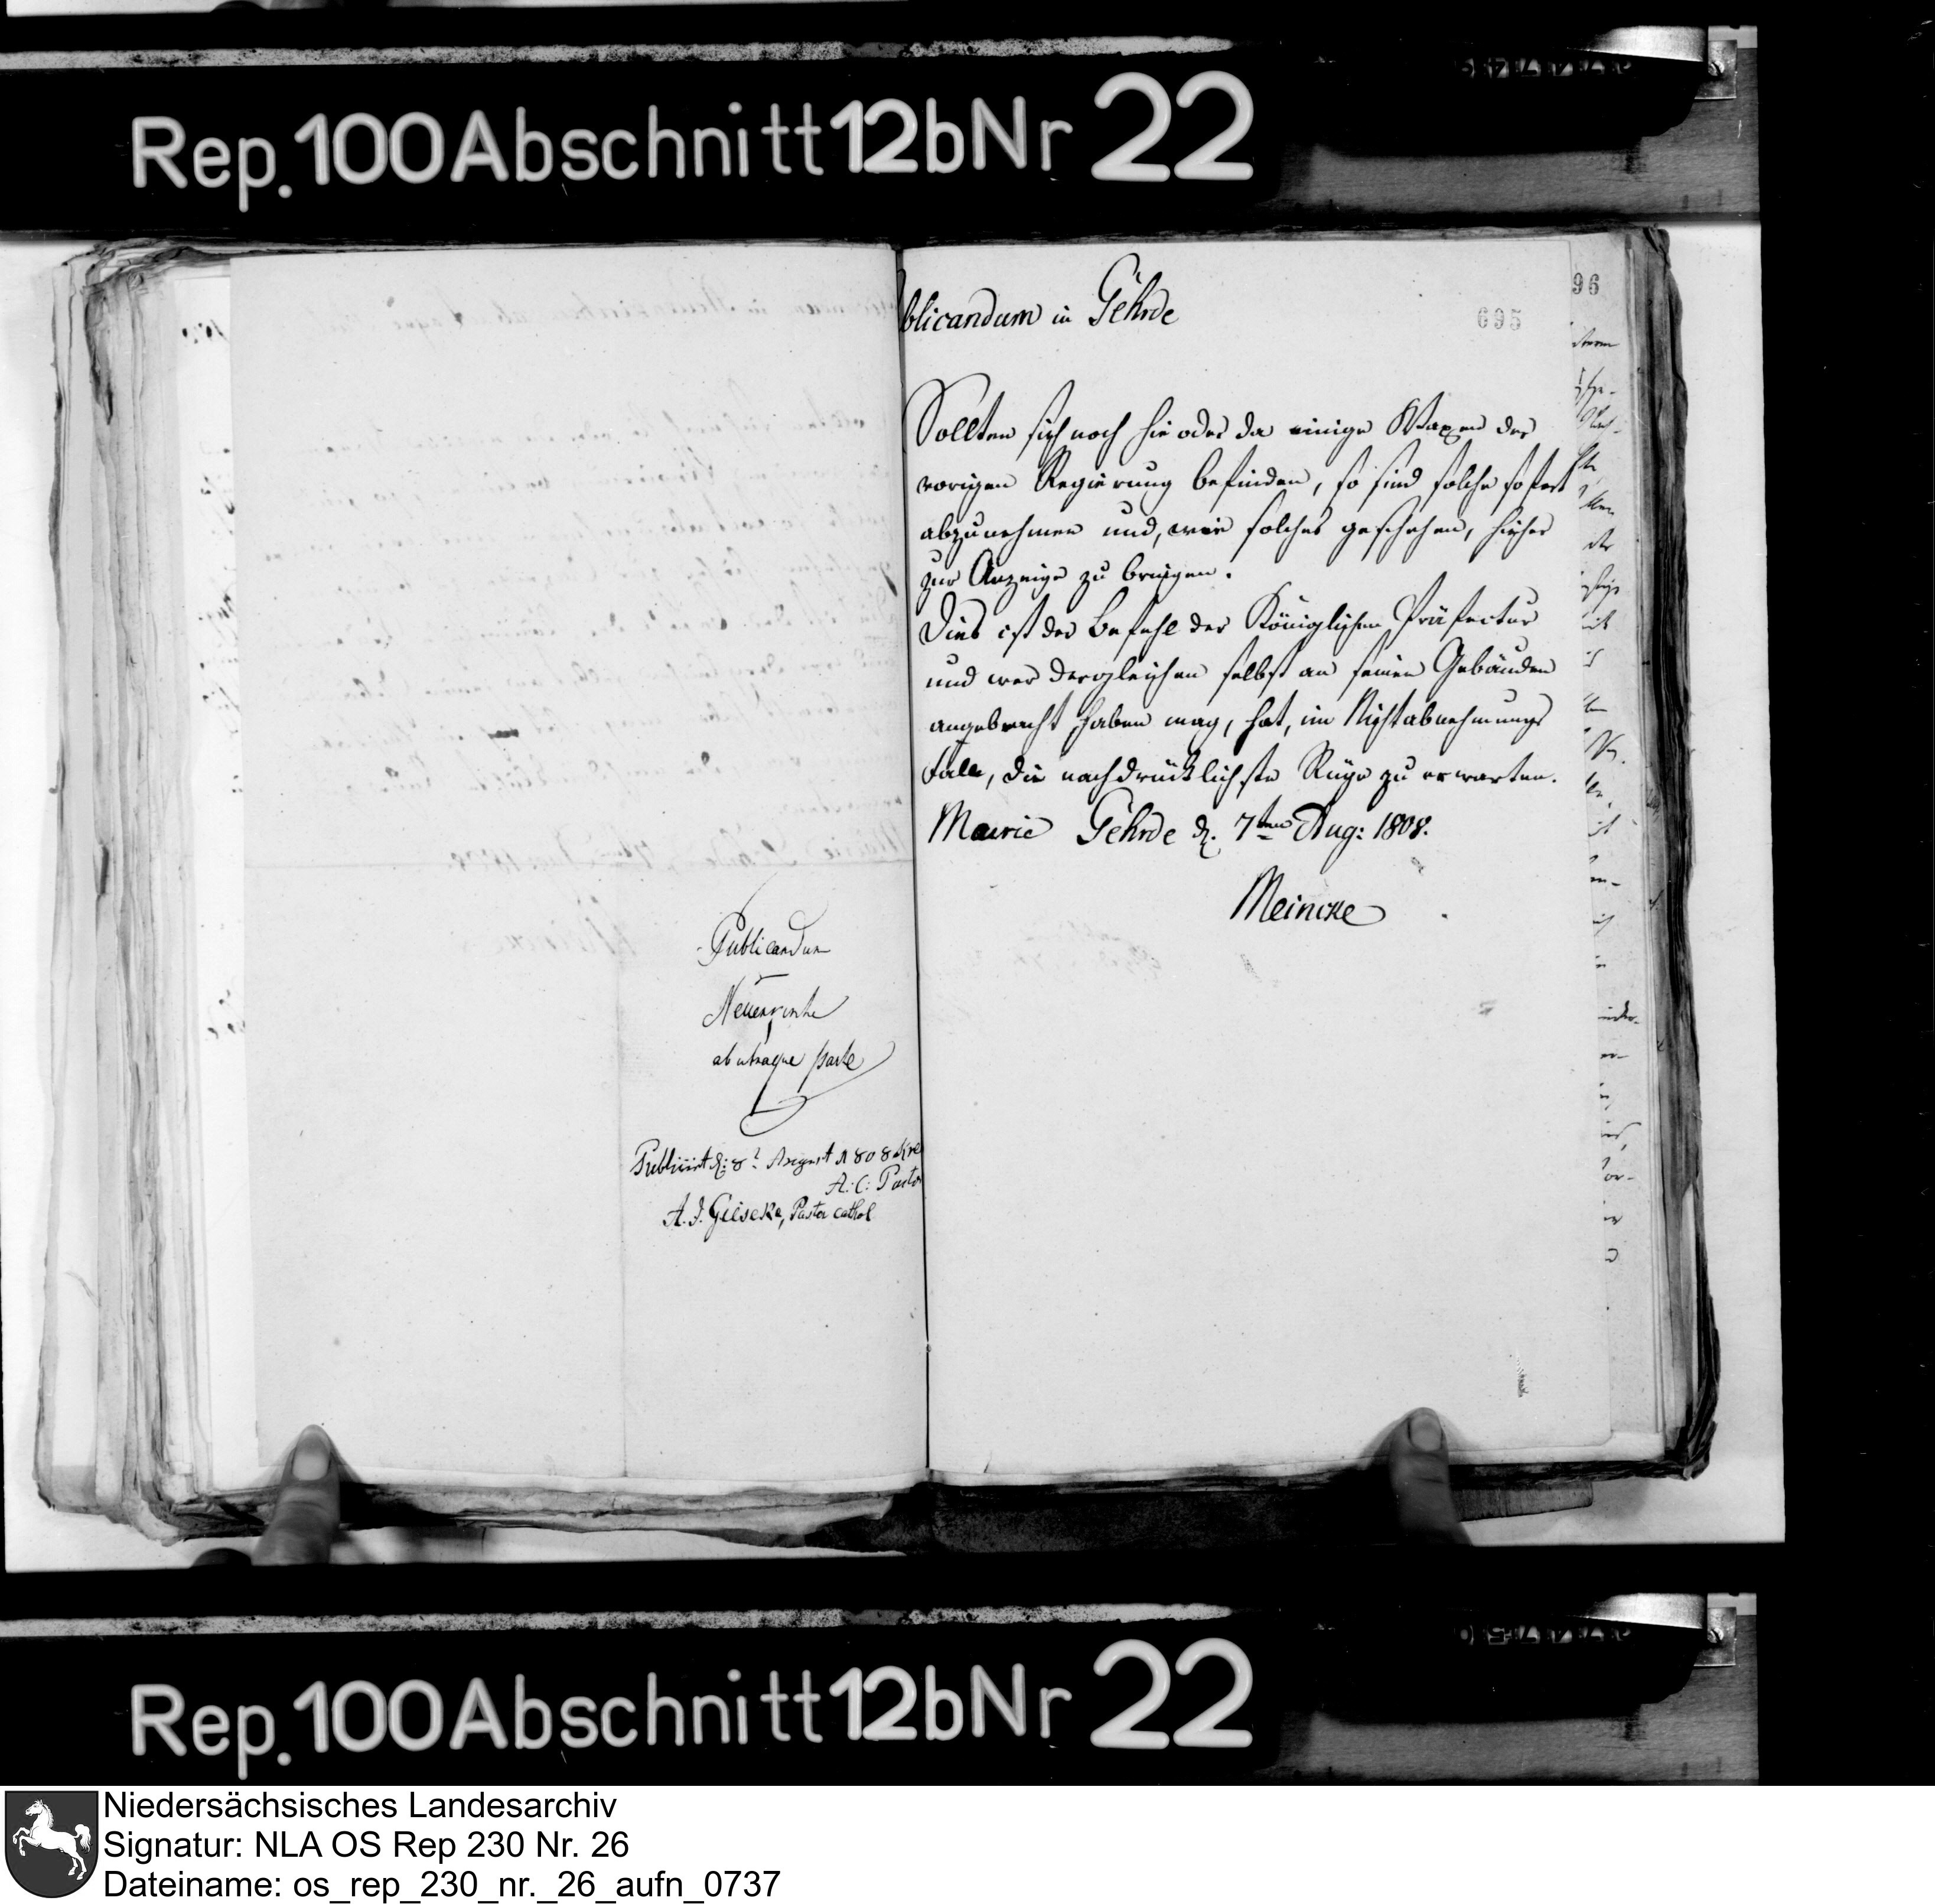 Rep. 100 Abschnitt 12b Nr 22
Publicandum
Neuenkirche
ab utraque parte
Publicirt d: 8t August 1808
A: C: Pastor
A. J. Gieseke, Pastor cathol
96
695
blicandum in Gehrde
Sollten sich noch hie oder da einige Wapen der
vorigen Regierung befinden, so sind solche sofort
abzunehmen und, wie solches geschehen, hieher
zur Anzeige zu bringen.
Dies ist der Befehl der Königlichen Präfectur
und wer dergleichen selbst an seinen Gebäuden
angebracht haben mag, hat, im Nichtabnehmungs
falle, die nachdrücklichste Rüge zu erwarten.
Mairie Gehrde d. 7ten Aug: 1808.
Meincke
Rep. 100 Abschnitt 12b Nr 22
Niedersächsisches Landesarchiv
Signatur: NLA OS Rep 230 Nr. 26
Dateiname: os_rep_230_nr._26_aufn_0737